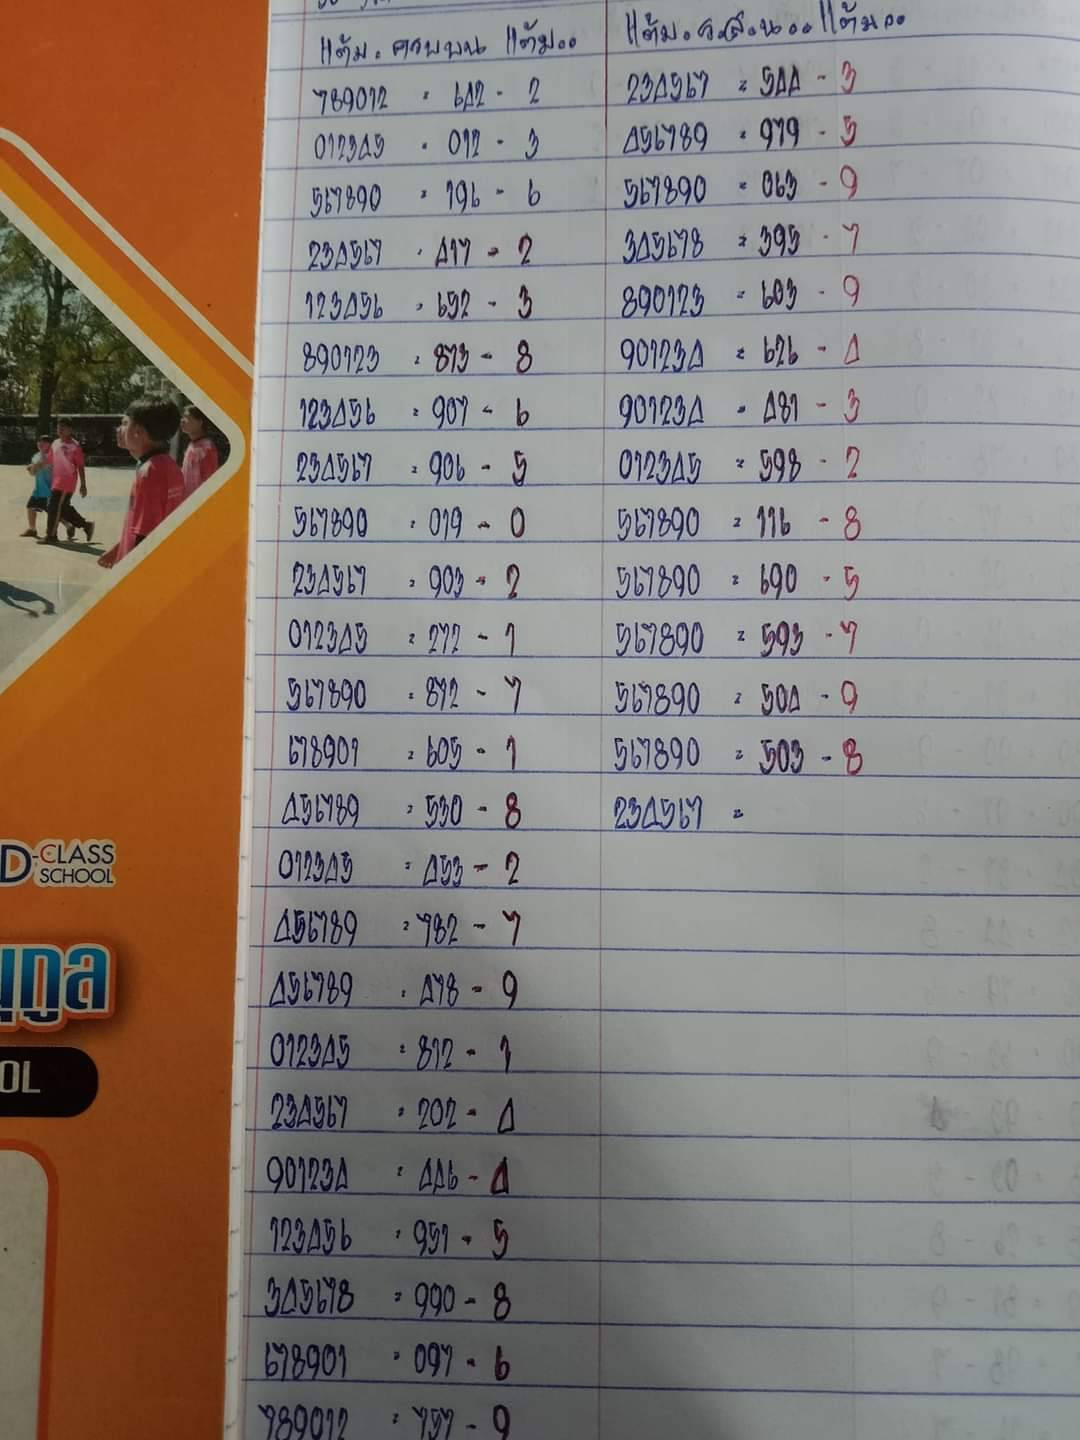 แต้ม. ครบบน แต้ม..
789012 = 642 - 2
012345 = 012 - 3
567890 = 196 - 6
234567 = 417 - 2
123456 = 652 - 3
890123 = 873 - 8
123456 = 907 - 6
234567 = 906 - 5
567890 = 019 - 0
234567 = 903 - 2
012345 = 272 - 1
567890 = 872 - 7
678901 = 605 - 1
456789 = 530 - 8
012345 = 453 - 2
456789 = 782 - 7
456789 = 478 - 9
012345 = 812 - 1
234567 = 202 - 4
901234 = 446 - 4
123456 = 951 - 5
345678 = 990 - 8
678901 = 097 - 6
789012 = 757 - 9
แต้ม. .. แต้ม..
234567 = 544 - 3
456789 = 979 - 5
567890 = 063 - 9
345678 = 395 - 7
890123 = 603 - 9
901234 = 626 - 4
901234 = 481 - 3
012345 = 598 - 2
567890 = 116 - 8
567890 = 690 - 5
567890 = 593 - 7
567890 = 504 - 9
567890 = 503 - 8
234567 =
D-CLASS
SCHOOL
นุกูล
OL